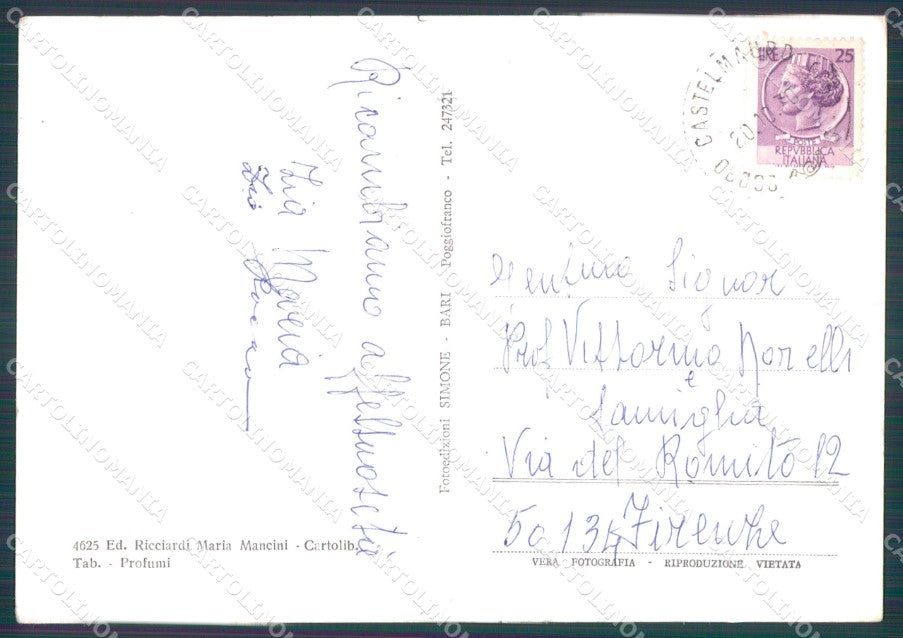 Ricambiamo affettuosità
Zia Maria
Zio
Fotoedizioni SIMONE - BARI Poggiofranco - Tel. 247321
4625 Ed. Ricciardi Maria Mancini - Cartolib.
Tab. - Profumi
CASTELMAURO
20.10
LIRE 25
POSTE
REPVBBLICA
ITALIANA
Signor
Prof Vittorino Morelli
e
famiglia
Via del Romito 12
50134 Firenze
VERA FOTOGRAFIA - RIPRODUZIONE VIETATA
CARTOLINOMANIA